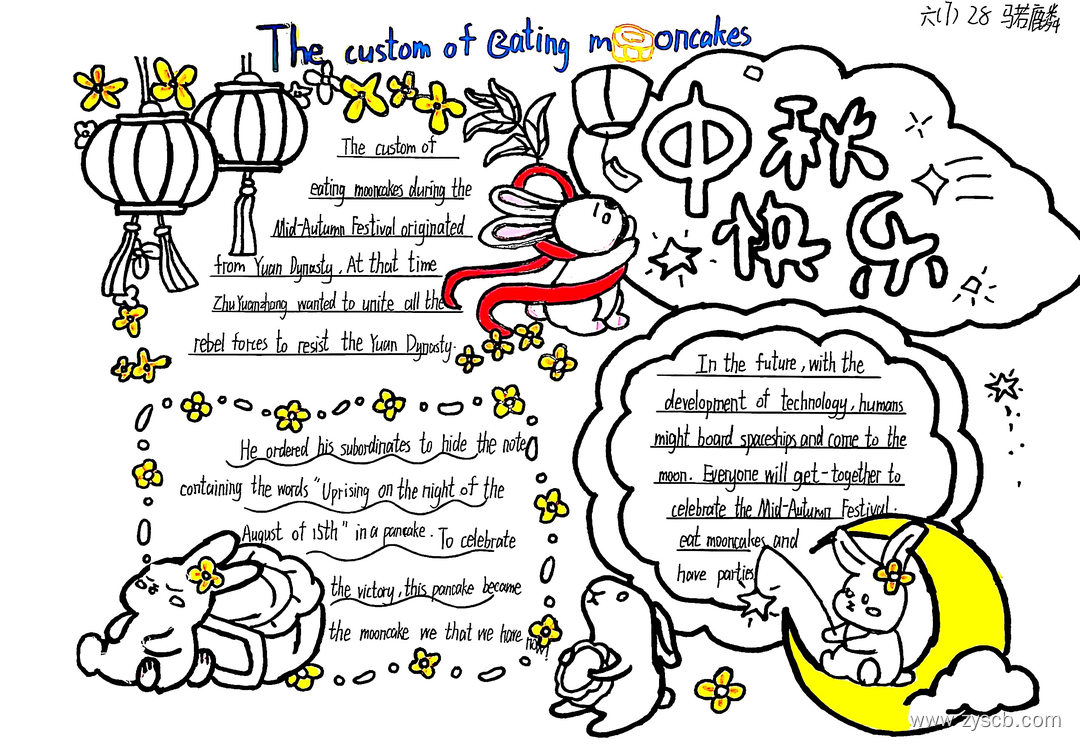 The custom of Eating mooncakes
六(7) 28 骆若麟
The custom of
eating mooncakes during the
Mid-Autumn Festival originated
from Yuan Dynasty. At that time
Zhu Yuanzhang wanted to unite all the
rebel forces to resist the Yuan Dynasty.
He ordered his subordinates to hide the note
containing the words "Uprising on the night of the
August of 15th" in a pancake. To celebrate
the victory, this pancake became
the mooncake we that we have now!
中秋
快乐
In the future, with the
development of technology, humans
might board spaceships and come to the
moon. Everyone will get-together to
celebrate the Mid-Autumn Festival.
eat mooncakes and
have parties
www.zyscb.com